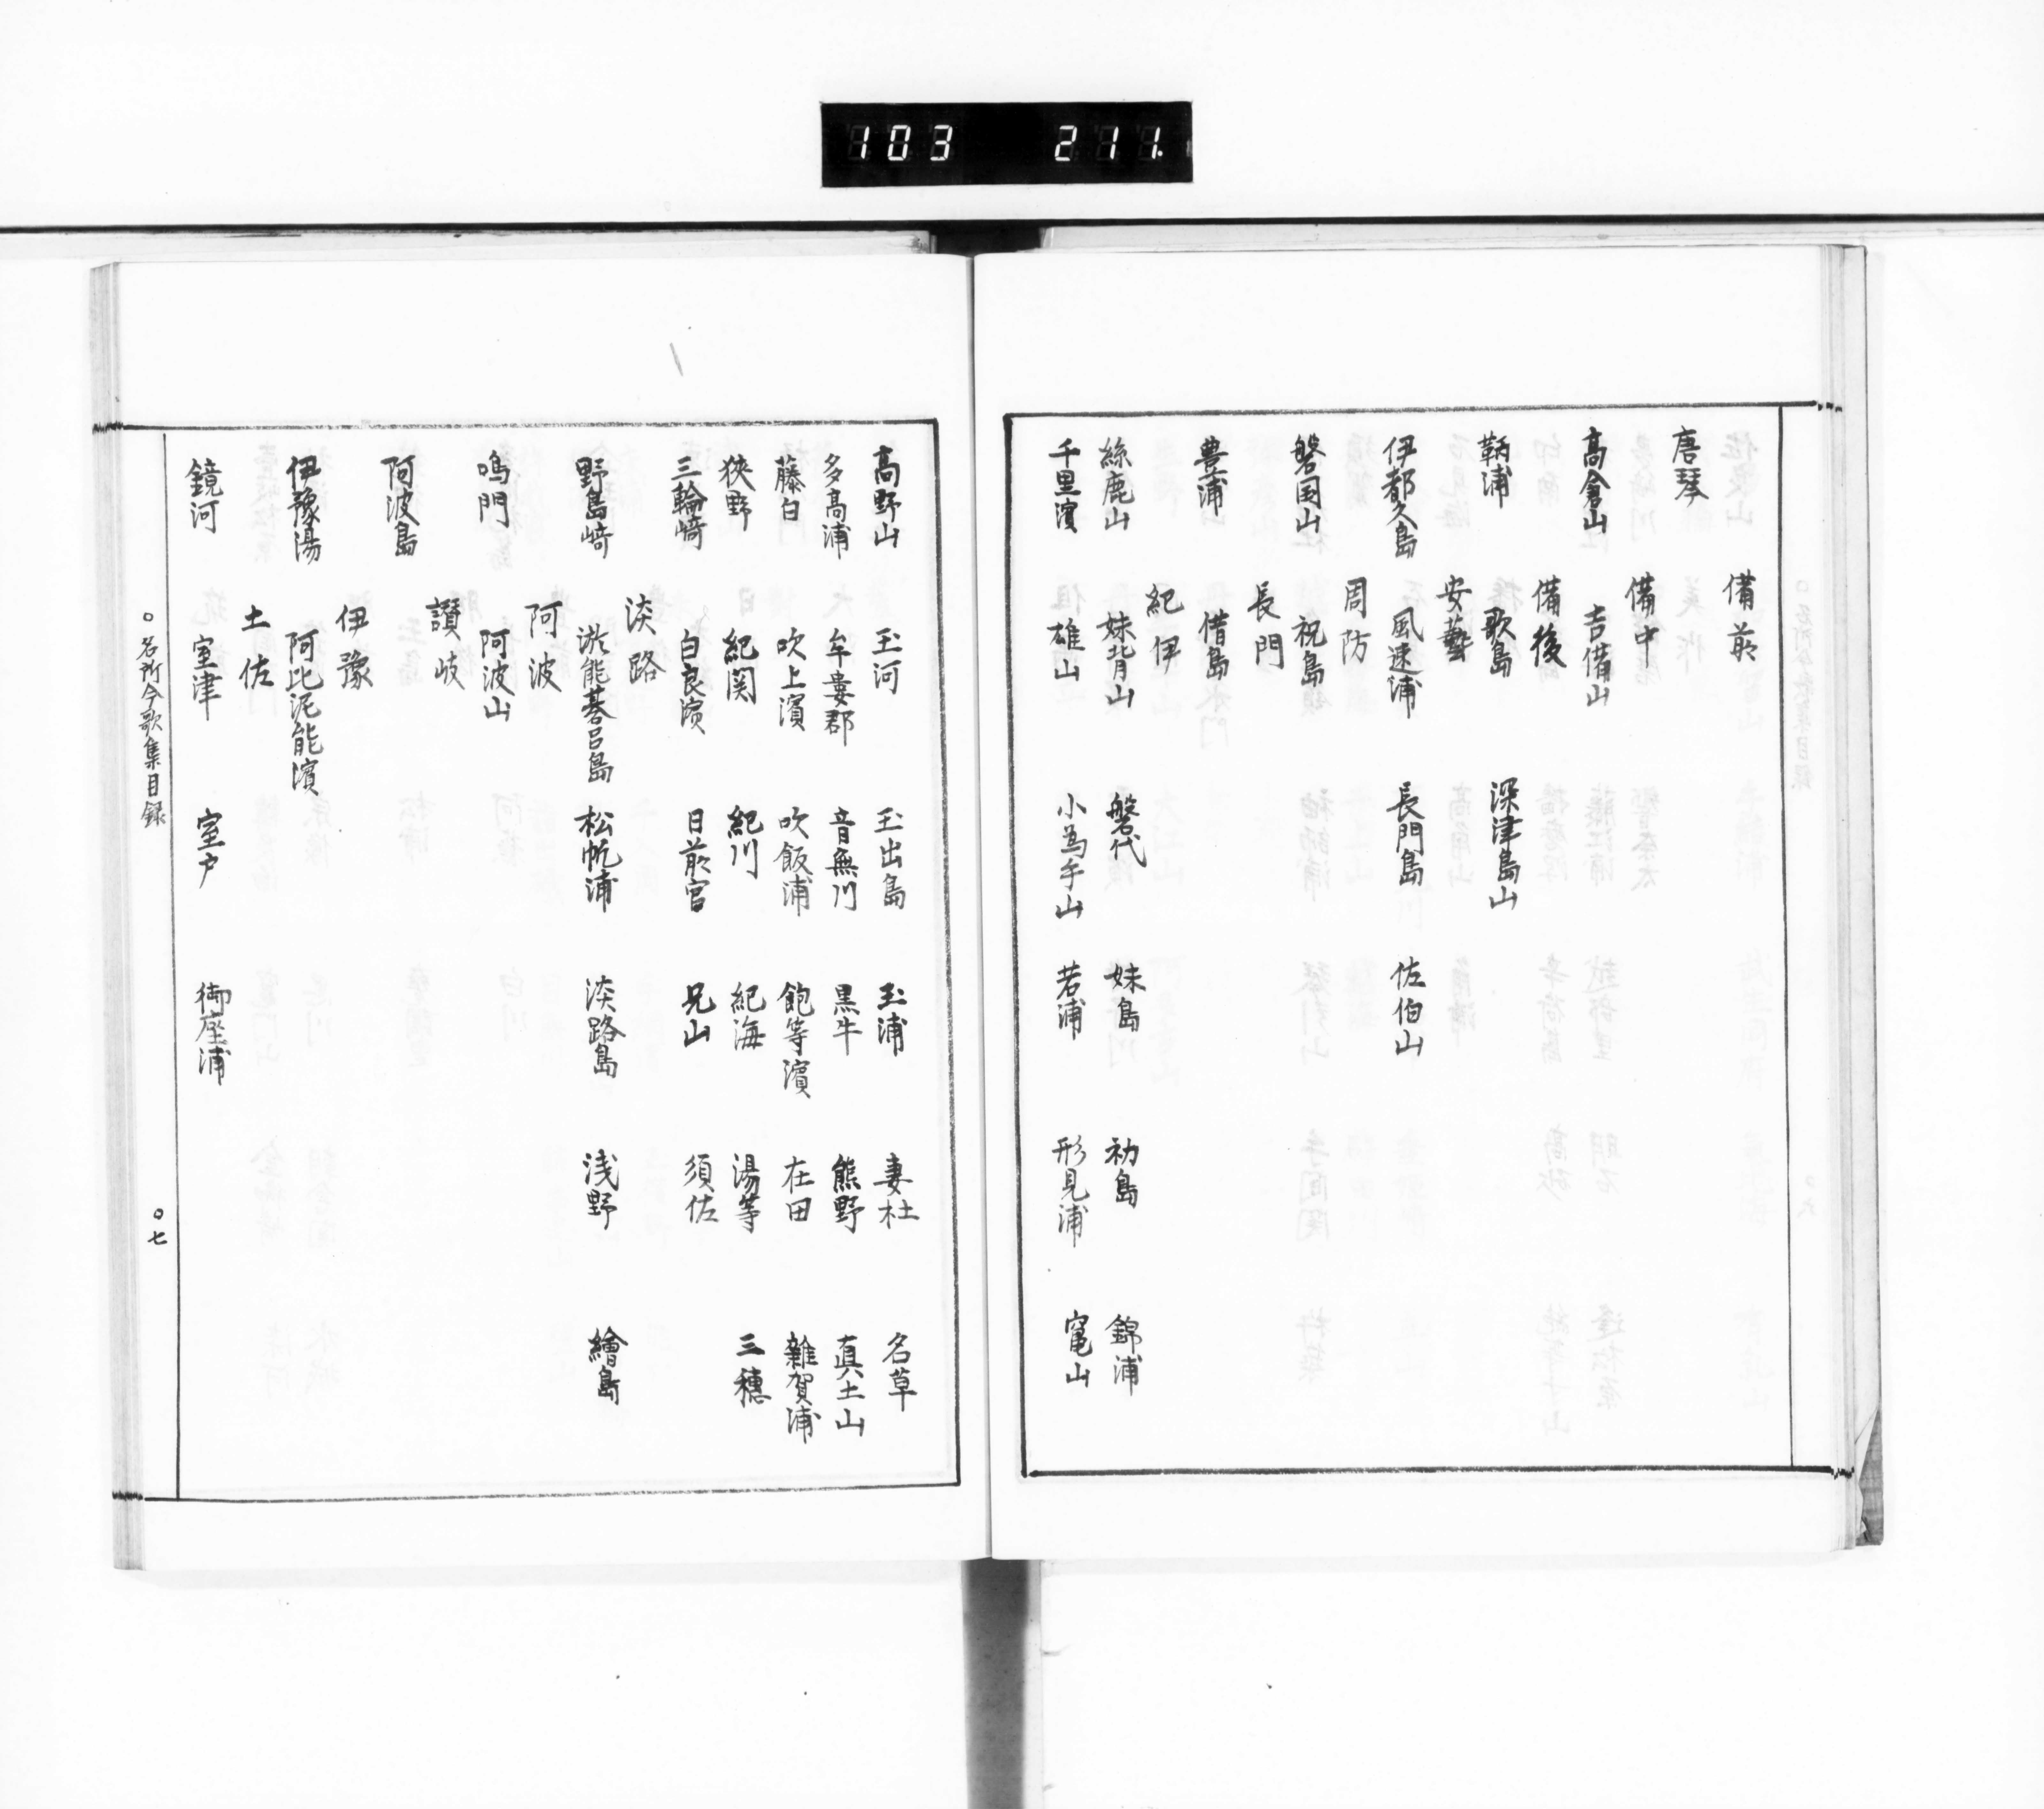 103 211
備前
唐琴
備中
高倉山 吉備山
備後
鞆浦 歌島 深津島山
安藝
伊都久島 風速浦 長門島 佐伯山
周防
磐国山 祝島
長門
豊浦 借島
紀伊
絲鹿山 妹背山 磐代 妹島 初島 錦浦
千里濱 俎雄山 小為手山 若浦 形見浦 竃山
高野山 玉河 玉出島 玉浦 妻杜 名草
多高浦 牟婁郡 音無川 黒牛 熊野 真土山
藤白 吹上濱 吹飯浦 飽等濱 在田 雜賀浦
狹野 紀関 紀川 紀海 湯等 三穗
三輪﨑 白良濱 日前宮 兄山 須佐
淡路
野島﨑 淤能碁呂島 松帆浦 淡路島 浅野 繪島
阿波
鳴門 阿波山
讃岐
阿波島
伊豫
伊豫湯 阿比泥能濱
土佐
鏡河 室津 室戸 御座浦
○名所今歌集目録 ○七